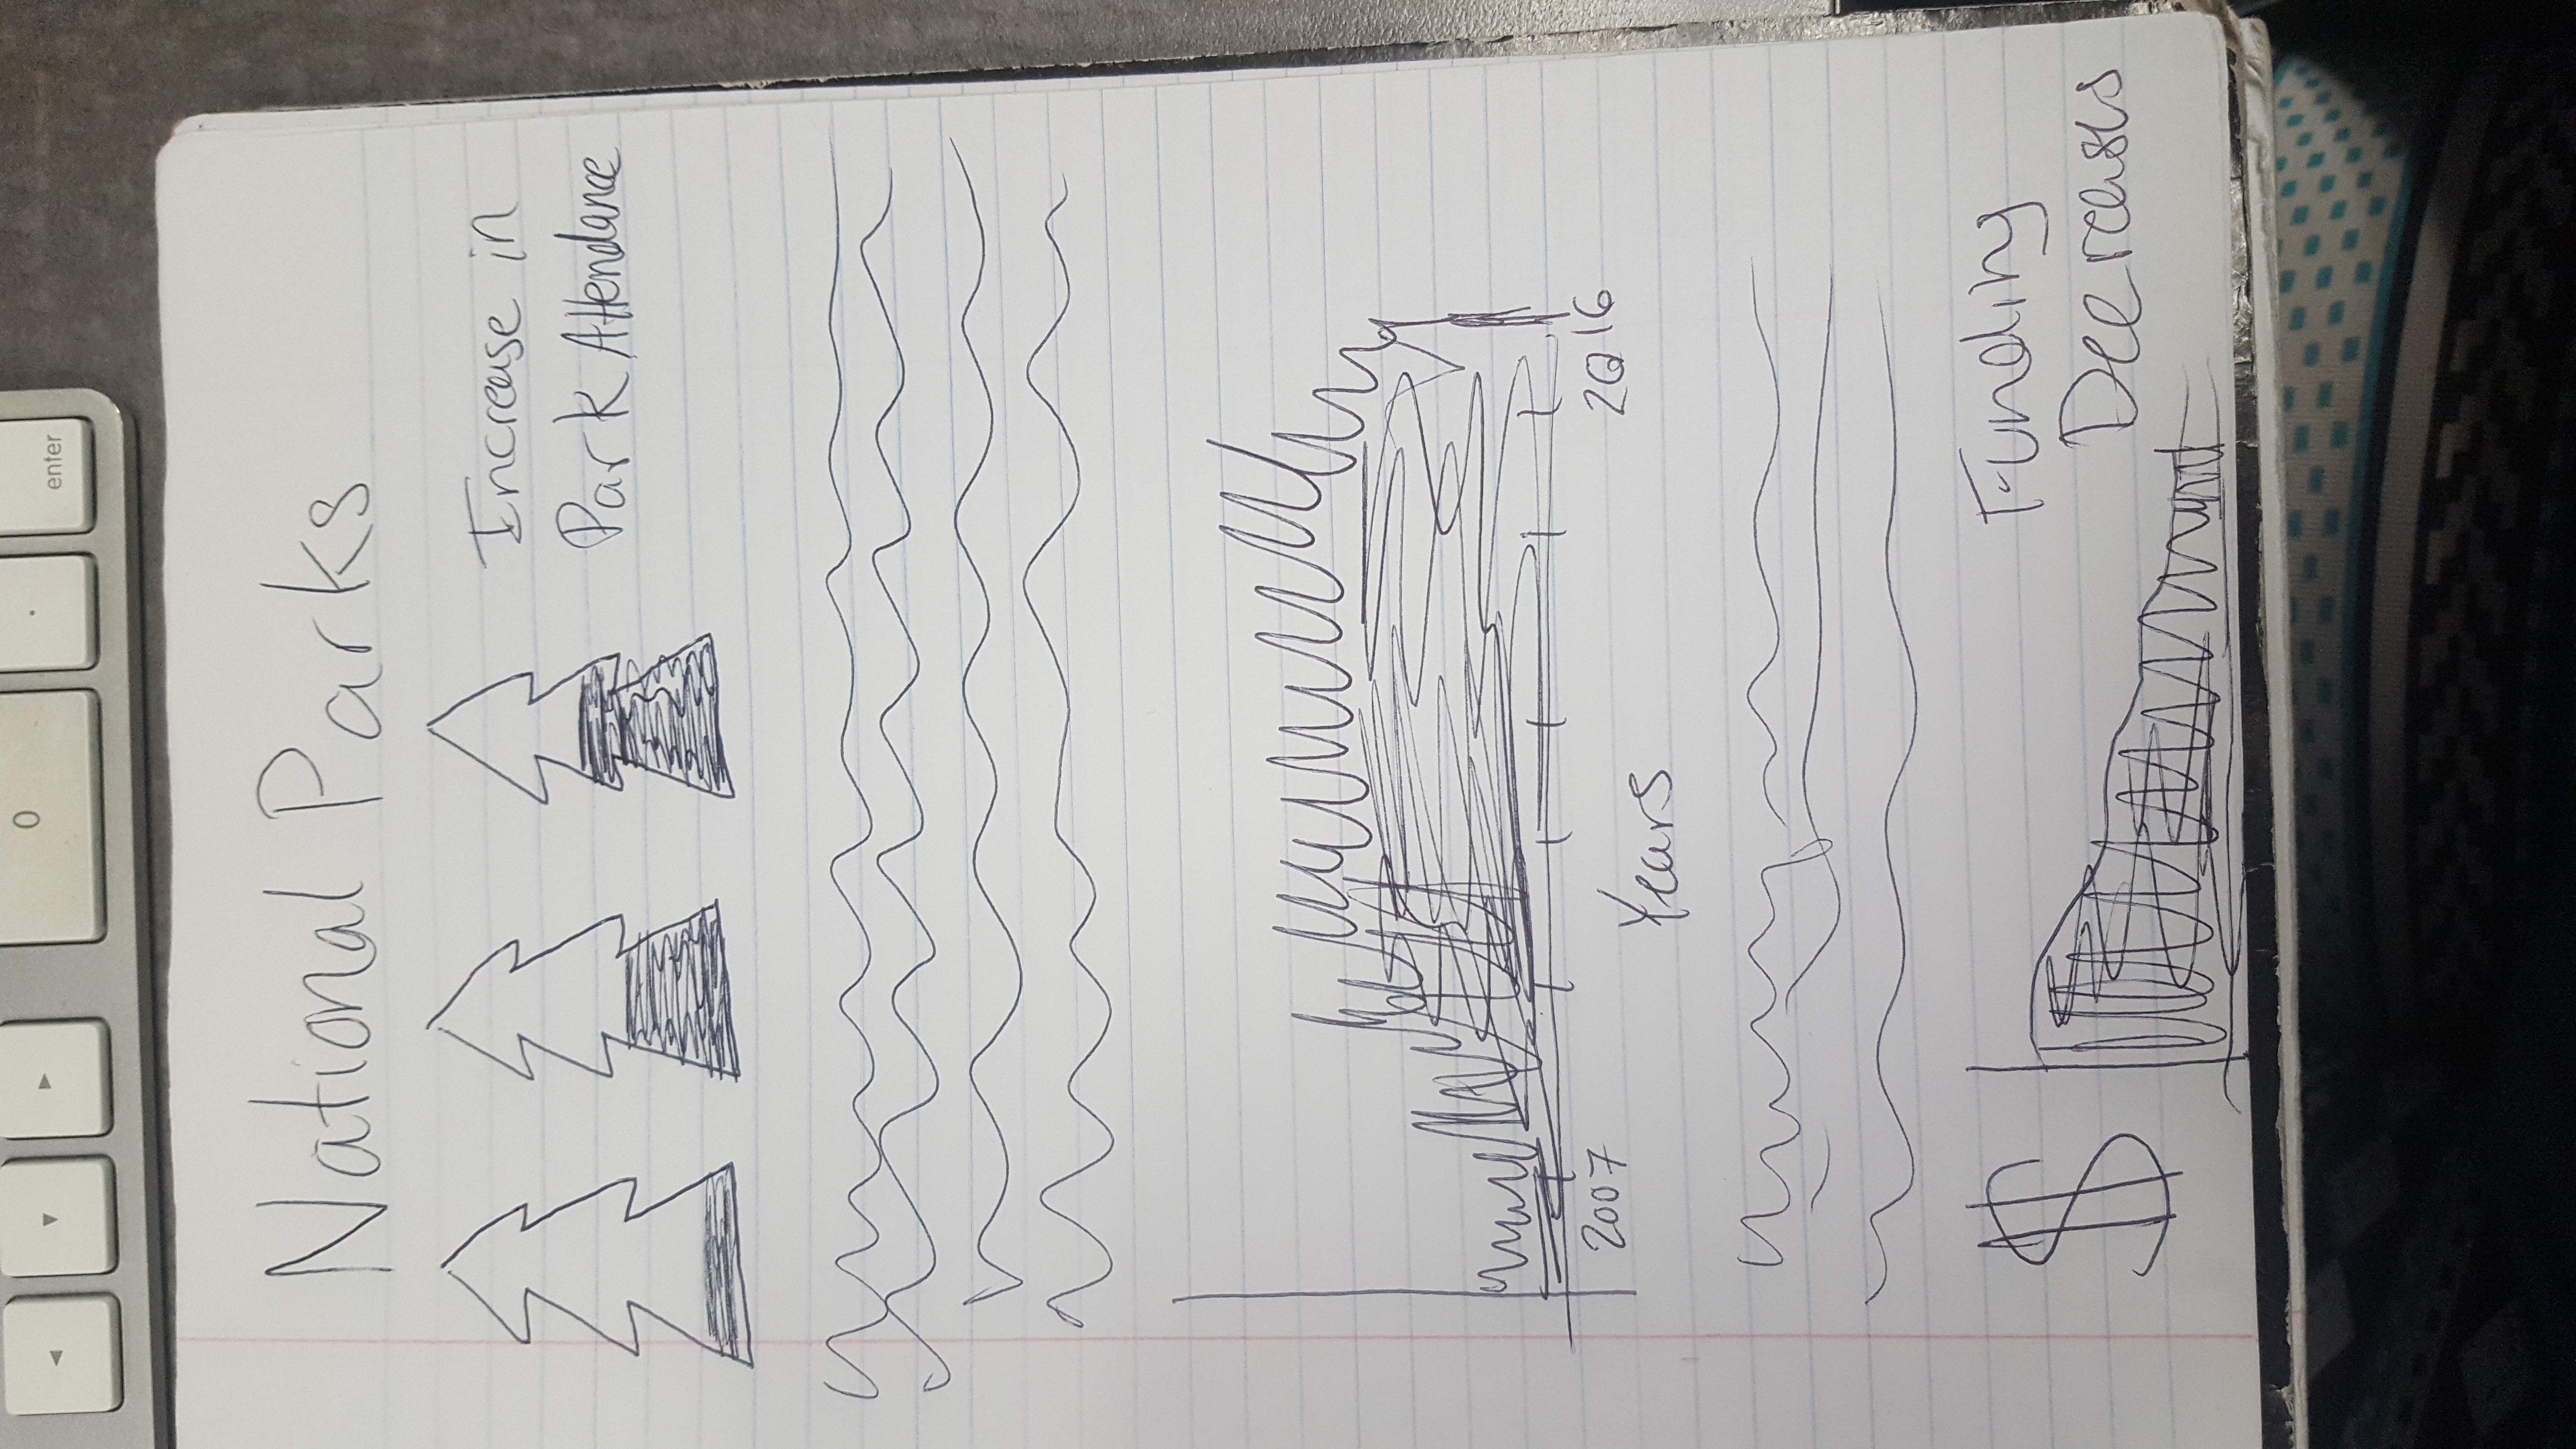 0
.
enter
National Parks
Increase in
Park Attendance
2007
2016
Years
$
Funding
Decreases